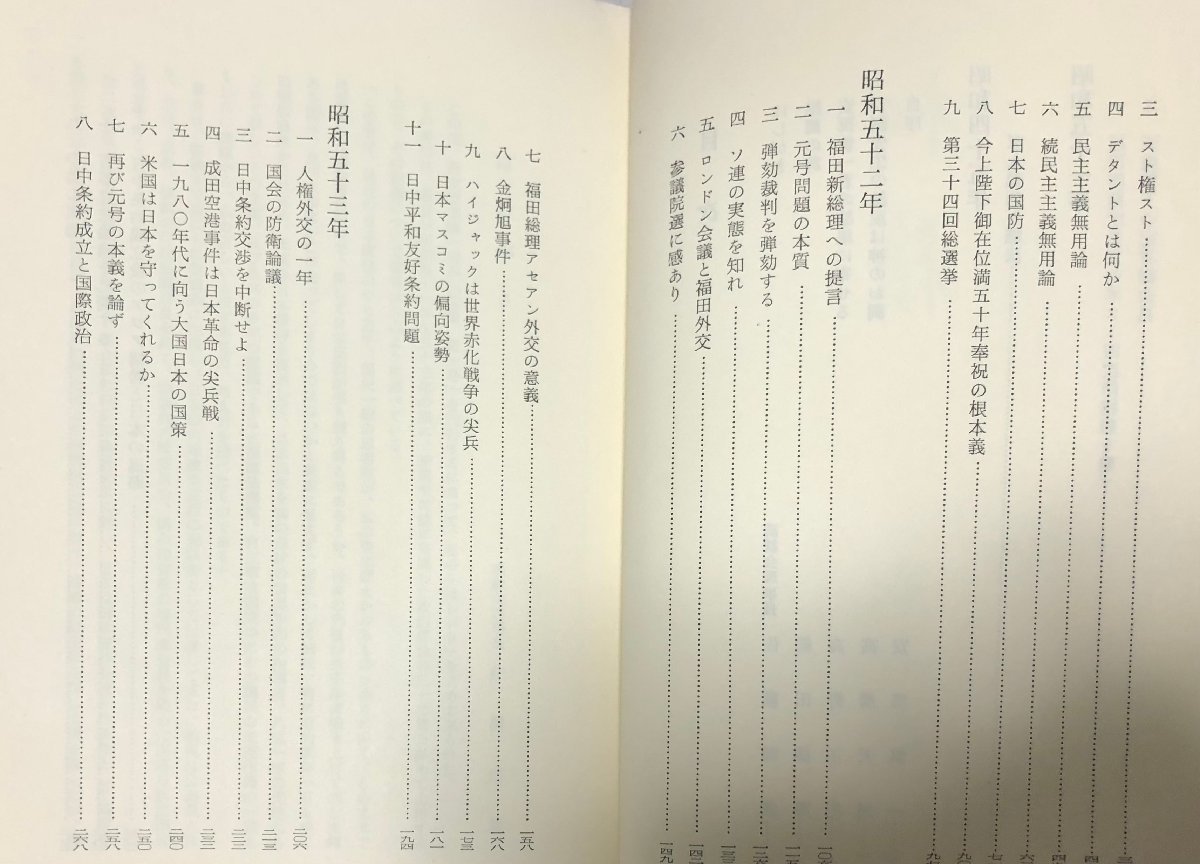 三 スト権スト
四 デタントとは何か
五 民主主義無用論
六 続民主主義無用論
七 日本の国防
八 今上陛下御在位満五十年奉祝の根本義
九 第三十四回総選挙
昭和五十二年
一 福田新総理への提言
二 元号問題の本質
三 弾劾裁判を弾劾する
四 ソ連の実態を知れ
五 ロンドン会議と福田外交
六 参議院選に感あり……一四九
七 福田総理アセアン外交の意義……一五八
八 金炯旭事件……一六八
九 ハイジャックは世界赤化戦争の尖兵……一七三
十 日本マスコミの偏向姿勢……一八一
十一 日中平和友好条約問題……一九四
昭和五十三年
一 人権外交の一年……二〇六
二 国会の防衛論議……二一三
三 日中条約交渉を中断せよ
四 成田空港事件は日本革命の尖兵戦
五 一九八〇年代に向う大国日本の国策……二四〇
六 米国は日本を守ってくれるか……二五〇
七 再び元号の本義を論ず……二五八
八 日中条約成立と国際政治……二六八